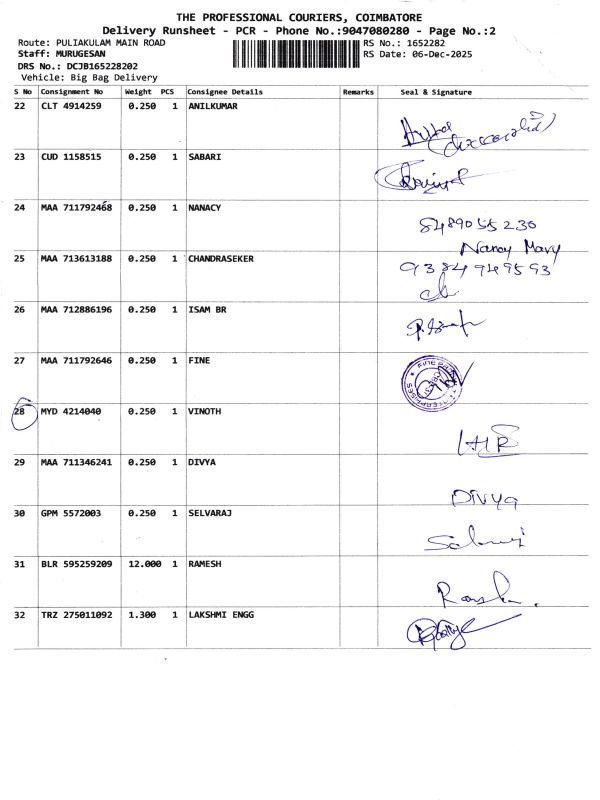 THE PROFESSIONAL COURIERS, COIMBATORE
Delivery Runsheet - PCR - Phone No.:9047080280 - Page No.:2
Route: PULIAKULAM MAIN ROAD
Staff: MURUGESAN
DRS No.: DCJB165228202
Vehicle: Big Bag Delivery
RS No.: 1652282
RS Date: 06-Dec-2025
S No Consignment No Weight PCS Consignee Details Remarks Seal & Signature
22 CLT 4914259 0.250 1 ANILKUMAR
23 CUD 1158515 0.250 1 SABARI
24 MAA 711792468 0.250 1 NANACY
8489055230
Nancy Mary
25 MAA 713613188 0.250 1 CHANDRASEKER
9384949593
26 MAA 712886196 0.250 1 ISAM BR
27 MAA 711792646 0.250 1 FINE
28 MYD 4214040 0.250 1 VINOTH
29 MAA 711346241 0.250 1 DIVYA
Divya
30 GPM 5572003 0.250 1 SELVARAJ
31 BLR 595259209 12.000 1 RAMESH
32 TRZ 275011092 1.300 1 LAKSHMI ENGG